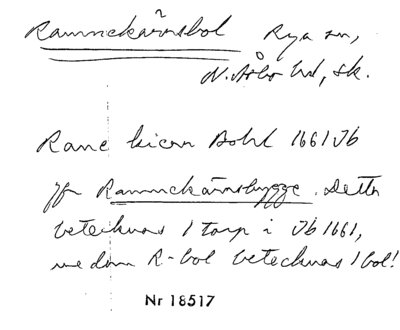 Rammekärnsbol Rya sn,
N. Åsbo hd, sk.
Rane kiern Bohl 1661 Jb
jfr Rammekärnsbygge. Detta
betecknas 1 torp i Jb 1661,
medan R-bol betecknas 1 bol!
Nr 18517